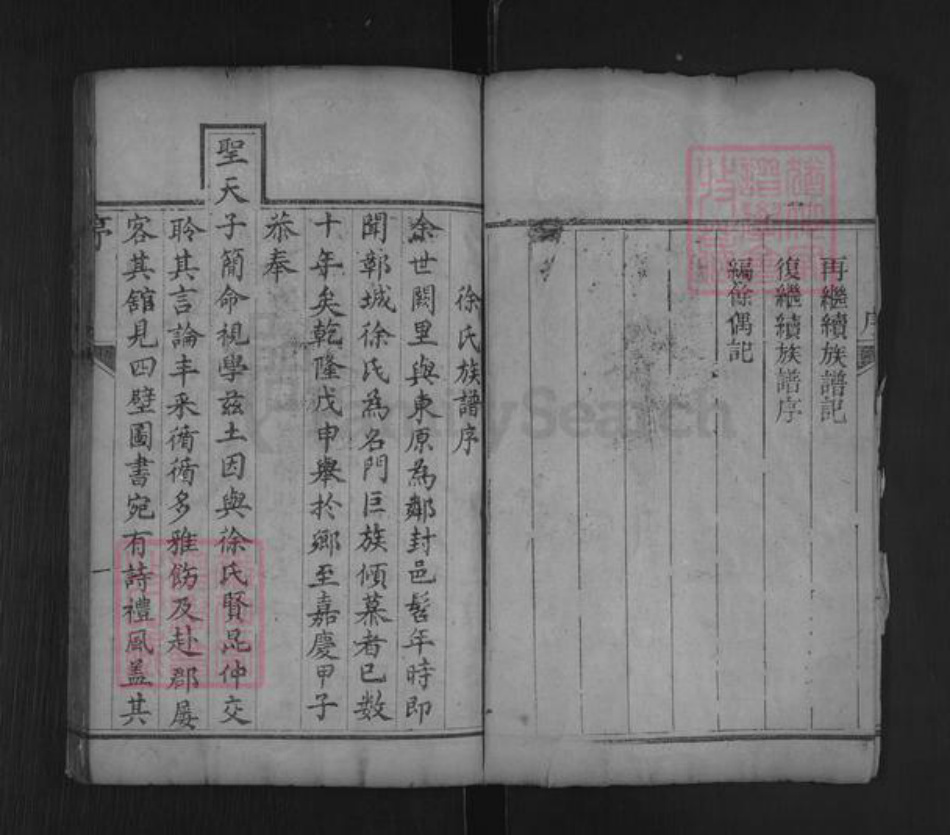 序
再繼續族譜記
復繼續族譜序
編餘偶記
徐氏族譜序
余世闕里與東原為鄰封邑髫年時即
聞鄣城徐氏為名門巨族傾慕者已數
十年矣乾隆戊申舉於鄉至嘉慶甲子
恭奉
聖天子簡命視學茲土因與徐氏賢昆仲交
聆其言論丰采循循多雅飭及赴郡屢
客其舘見四壁圖書宛有詩禮風蓋其
序
一
FamilySearch